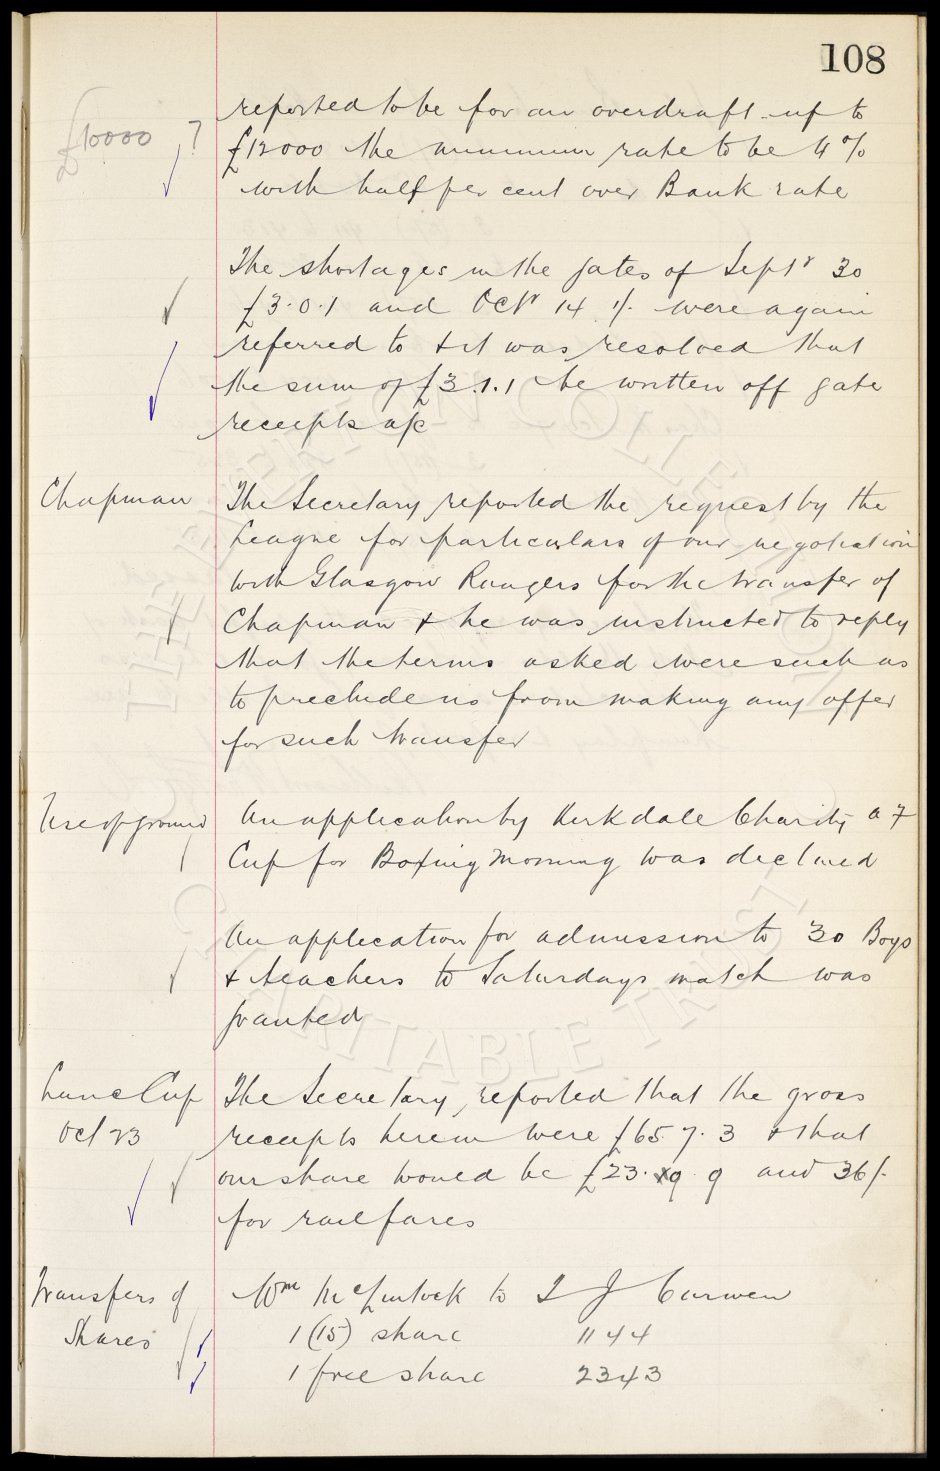 108
£10000 ?
reported to be for an overdraft up to
£12000 the minimum rate to be 4%
with half per cent over Bank rate
The shortages in the gates of Septr 30
£3.0.1 and Octr 14 1/- were again
referred to & it was resolved that
the sum of £3.1.1 be written off gate
receipts a/c
Chapman
The Secretary reported the request by the
League for particulars of our negotiation
with Glasgow Rangers for the transfer of
Chapman & he was instructed to reply
that the terms asked were such as
to preclude us from making any offer
for such transfer
Use of ground
An application by Kirkdale Charity a 7
Cup for Boxing Morning was declined
An application for admission to 30 Boys
& teachers to Saturdays match was
granted
Lanc Cup
Oct 23
The Secretary reported that the gross
receipts herein were £65.7.3 & that
our share would be £23.9.9 and 36/-
for railfares
Transfers of
Shares
Wm McLintock to T J Curwen
1 (15) share 1144
1 free share 2343
EVERTON COLLECTION
CHARITABLE TRUST